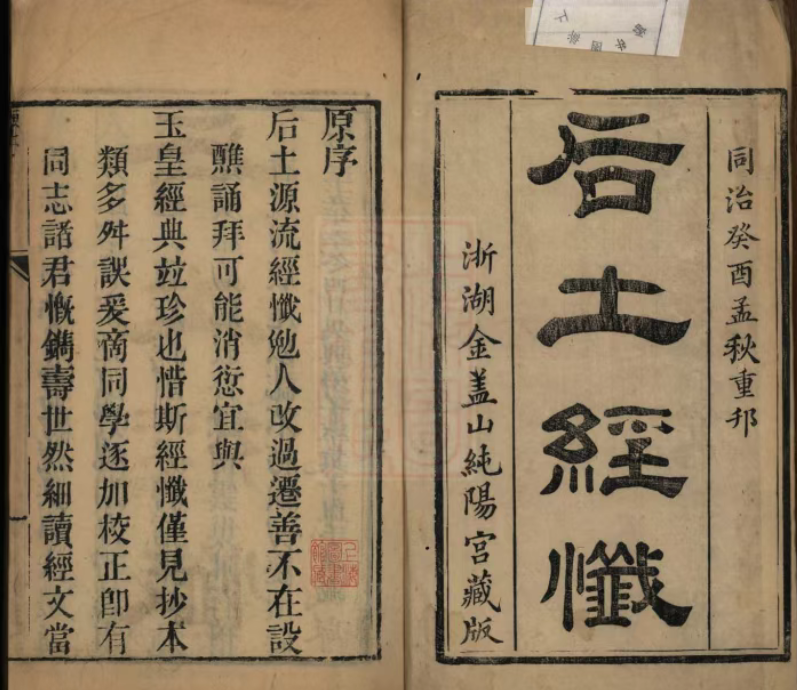 同治癸酉孟秋重刊
后土經懺
浙湖金盖山純陽宮藏版
原序
后土源流經懺勉人改過遷善不在設
醮誦拜可能消愆宜與
玉皇經典竝珍也惜斯經懺僅見抄本
類多舛誤爰商同學逐加校正卽有
同志諸君慨鐫壽世然細讀經文當